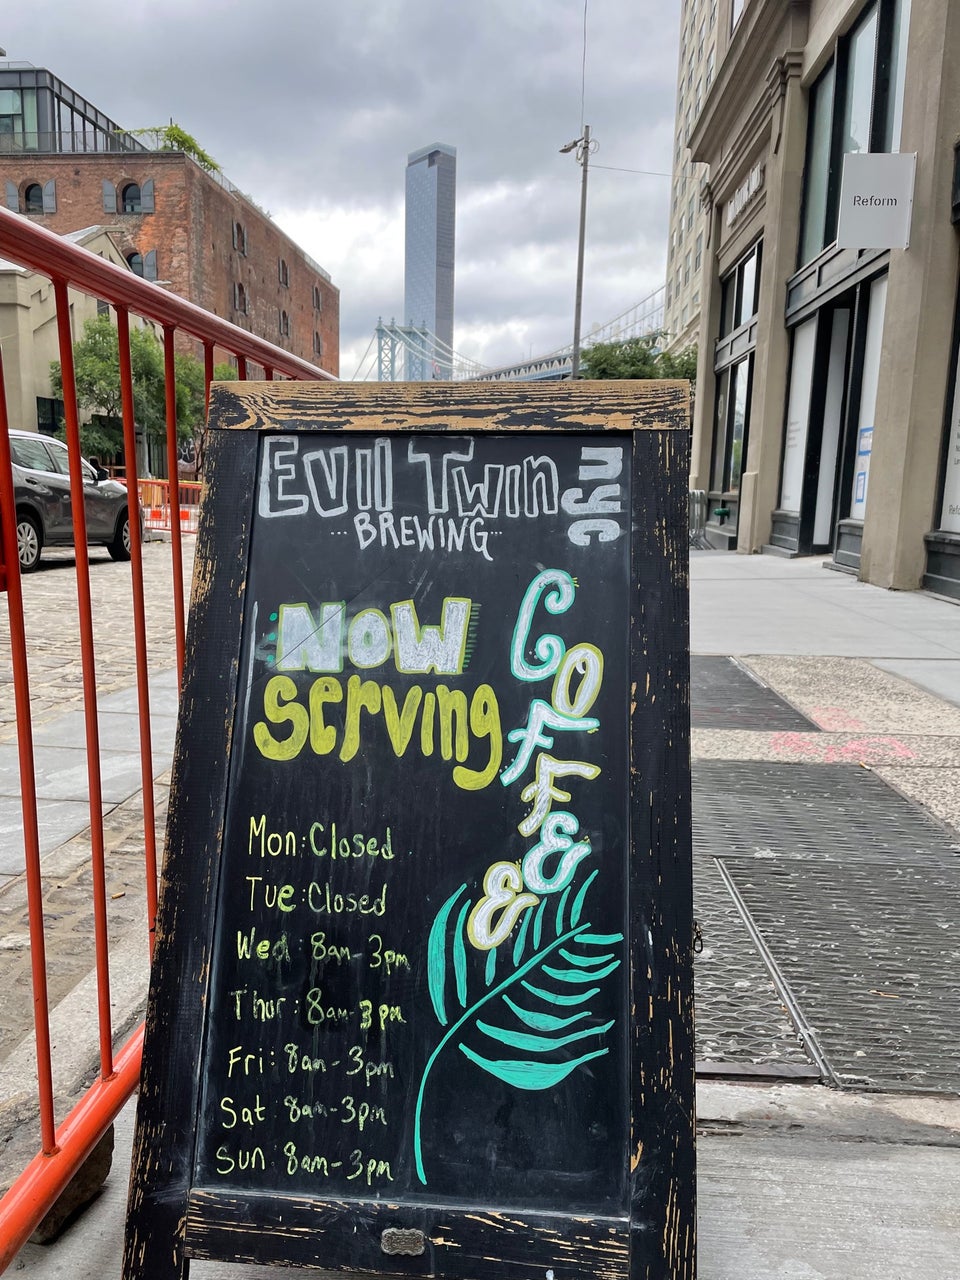 Reform
Evil Twin nyc
...BREWING...
Now
Serving
COFFEE &
Mon: Closed
Tue: Closed
Wed 8am-3pm
Thur: 8am-3pm
Fri: 8am-3pm
Sat 8am-3pm
Sun 8am-3pm